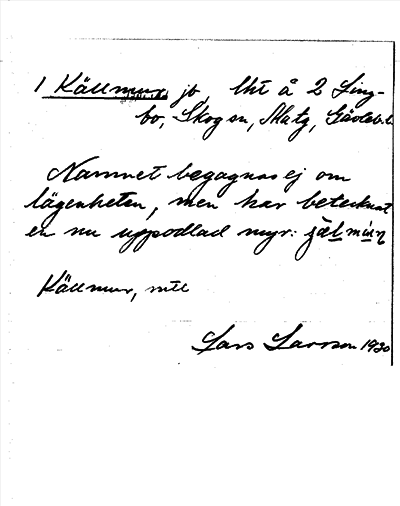 1 Källmur, jb, lht å 2 Ling-
bo, Skogsn, Matg, Gävleb.l.
Namnet begagnas ej om
lägenheten, men har betecknat
en nu uppodlad myr:
Källmur, mtl
Lars Larsson 1930